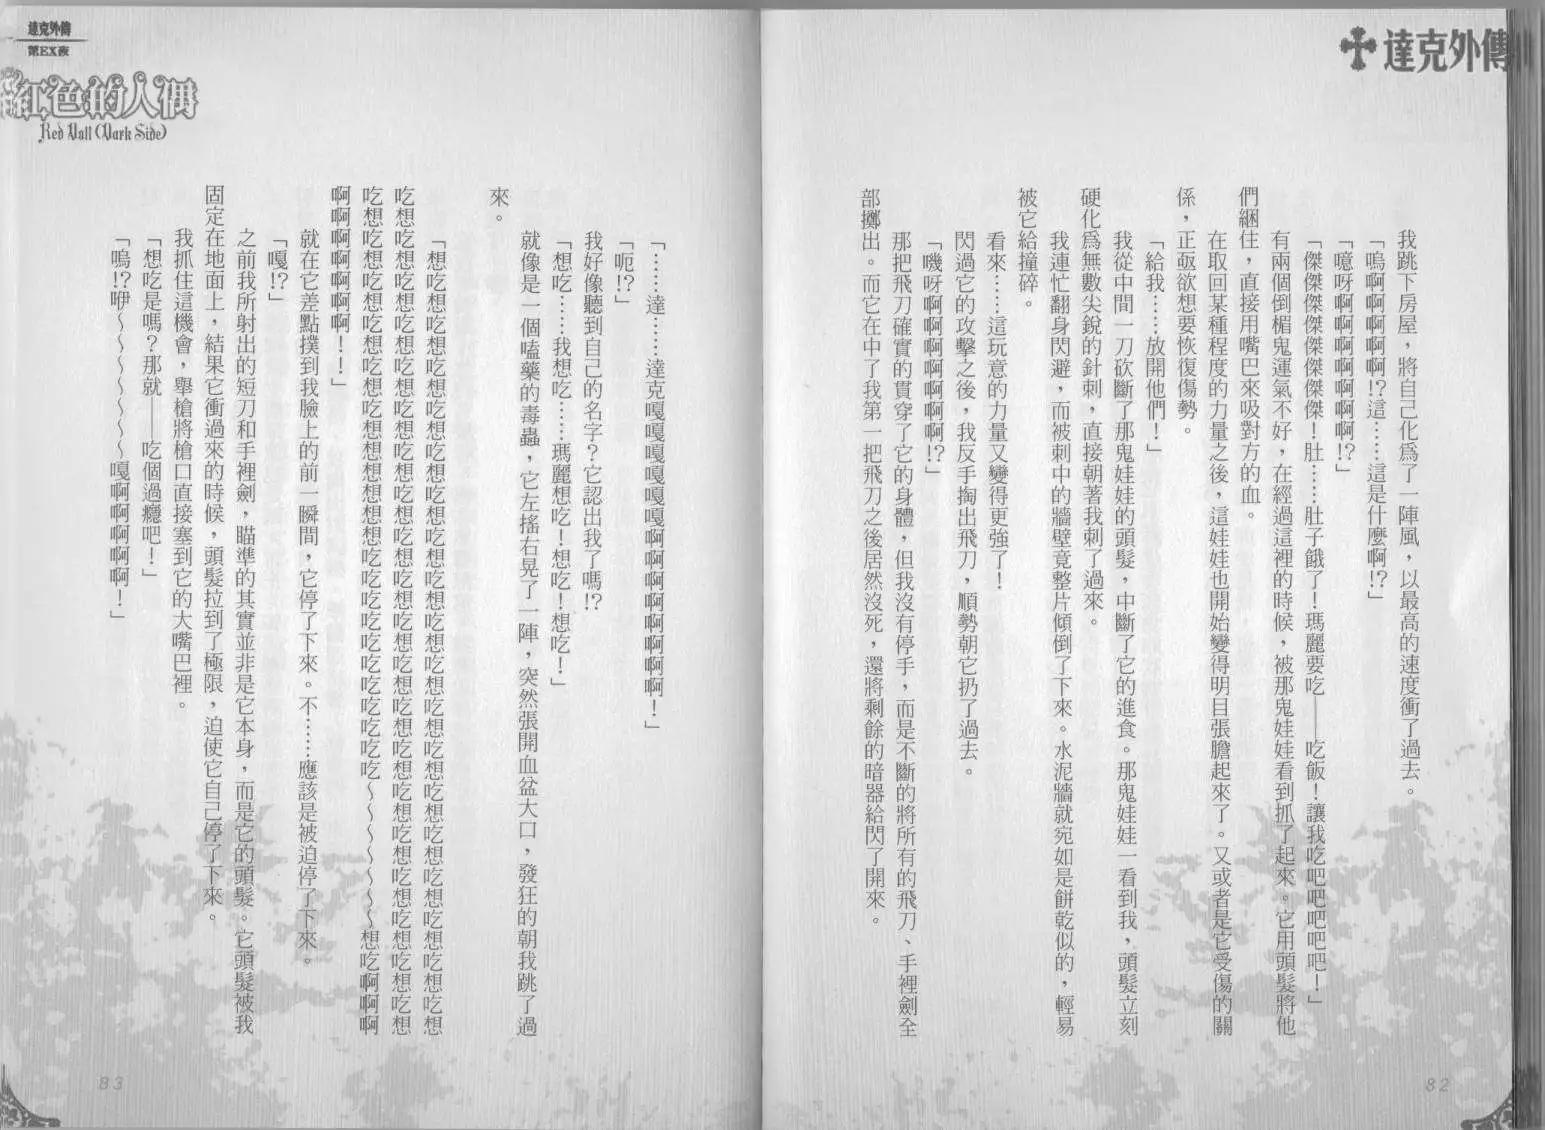 達克外傳
我跳下房屋，將自己化爲了一陣風，以最高的速度衝了過去。
「嗚啊啊啊啊!?這……這是什麼啊!?」
「噫呀啊啊啊啊啊啊!?」
「傑傑傑傑傑傑傑！肚……肚子餓了！瑪麗要吃——吃飯！讓我吃吧吧吧吧吧！」
有兩個倒楣鬼運氣不好，在經過這裡的時候，被那鬼娃娃看到抓了起來。它用頭髮將他
們綑住，直接用嘴巴來吸對方的血。
在取回某種程度的力量之後，這娃娃也開始變得明目張膽起來了。又或者是它受傷的關
係，正亟欲想要恢復傷勢。
「給我……放開他們！」
我從中間一刀砍斷了那鬼娃娃的頭髮，中斷了它的進食。那鬼娃娃一看到我，頭髮立刻
硬化爲無數尖銳的針刺，直接朝著我刺了過來。
我連忙翻身閃避，而被刺中的牆壁竟整片傾倒了下來。水泥牆就宛如是餅乾似的，輕易
被它給撞碎。
看來……這玩意的力量又變得更強了！
閃過它的攻擊之後，我反手掏出飛刀，順勢朝它扔了過去。
「嘰呀啊啊啊啊啊啊啊!?」
那把飛刀確實的貫穿了它的身體，但我沒有停手，而是不斷的將所有的飛刀、手裡劍全
部擲出。而它在中了我第一把飛刀之後居然沒死，還將剩餘的暗器給閃了開來。
82
達克外傳
第EX夜
紅色的人偶
Red Doll (Dark Side)
「……達……達克嘎嘎嘎嘎嘎嘎啊啊啊啊啊啊啊啊！」
「呃!?」
我好像聽到自己的名字？它認出我了嗎!?
「想吃……我想吃……瑪麗想吃！想吃！想吃！」
就像是一個嗑藥的毒蟲，它左搖右晃了一陣，突然張開血盆大口，發狂的朝我跳了過
來。
「想吃想吃想吃想吃想吃想吃想吃想吃想吃想吃想吃想吃想吃想吃想吃想吃想吃想
吃想吃想吃想吃想吃想吃想吃想吃想吃想吃想吃想吃想吃想吃想吃想吃想吃想吃想
吃想吃想吃想吃想吃想想想想想想吃吃吃吃吃吃吃吃～～～～～～想吃啊啊啊
啊啊啊啊啊啊啊！！」
就在它差點撲到我臉上的前一瞬間，它停了下來。不……應該是被迫停了下來。
「嘎!?」
之前我所射出的短刀和手裡劍，瞄準的其實並非是它本身，而是它的頭髮。它頭髮被我
固定在地面上，結果它衝過來的時候，頭髮拉到了極限，迫使它自己停了下來。
我抓住這機會，舉槍將槍口直接塞到它的大嘴巴裡。
「想吃是嗎？那就——吃個過癮吧！」
「嗚!?咿～～～～～～～嘎啊啊啊啊啊！」
83